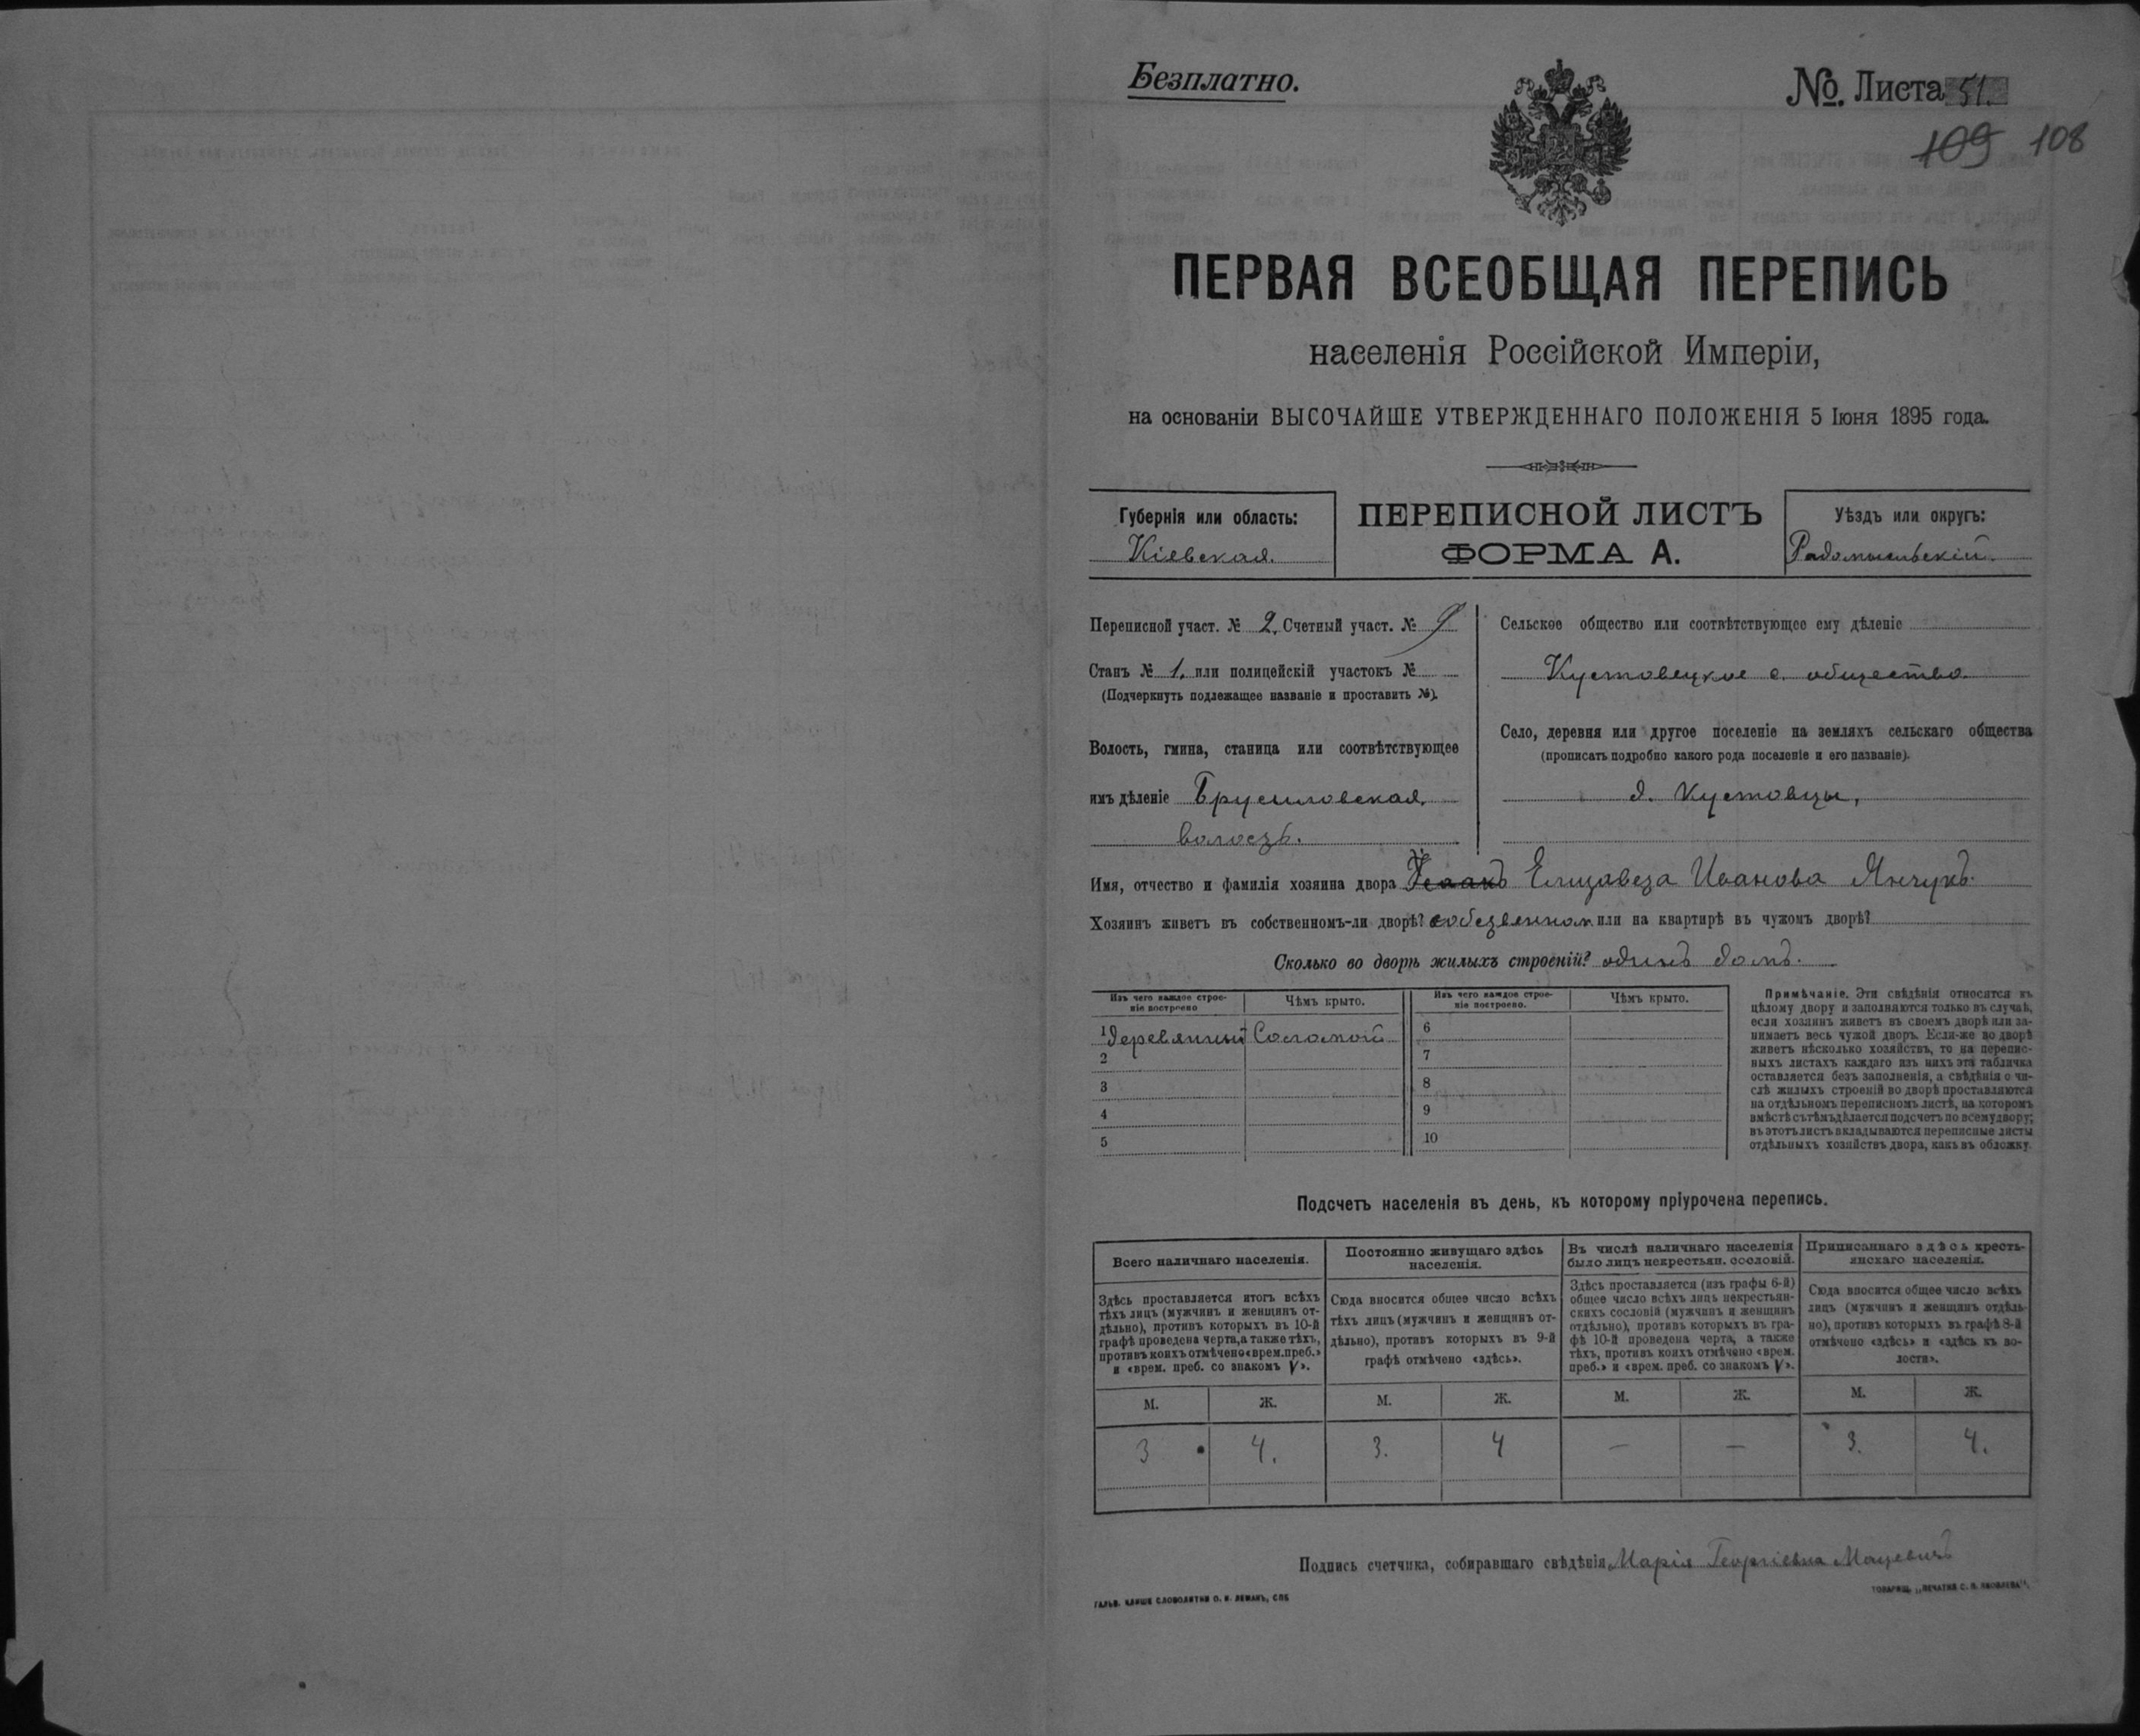 Безплатно.
№. Листа 51.
109 108
ПЕРВАЯ ВСЕОБЩАЯ ПЕРЕПИСЬ
населенія Россійской Имперіи,
на основаніи ВЫСОЧАЙШЕ УТВЕРЖДЕННАГО ПОЛОЖЕНІЯ 5 Іюня 1895 года.
Губернія или область:
Кіевская.
ПЕРЕПИСНОЙ ЛИСТЪ
ФОРМА А.
Уѣздъ или округъ:
Радомысльскій.
Переписной участ. № 2. Счетный участ. № 9
Станъ № 1. или полицейскій участокъ №
(Подчеркнуть подлежащее названіе и проставить №).
Волость, гмина, станица или соотвѣтствующее
имъ дѣленіе Брусиловская
волость.
Сельское общество или соотвѣтствующее ему дѣленіе
Кустовецкое с. общество.
Село, деревня или другое поселеніе на земляхъ сельскаго общества
(прописать подробно какого рода поселеніе и его названіе).
д. Кустовцы,
Имя, отчество и фамилія хозяина двора Елизавета Иванова Янчукъ.
Хозяинъ живетъ въ собственномъ-ли дворѣ? собственном или на квартирѣ въ чужомъ дворѣ?
Сколько во дворѣ жилыхъ строеній? одинъ домъ.
Изъ чего каждое строе-
ніе построено
Чѣмъ крыто.
Изъ чего каждое строе-
ніе построено.
Чѣмъ крыто.
1 деревянный Соломой
2
3
4
5
6
7
8
9
10
Примѣчаніе. Эти свѣдѣнія относятся къ
цѣлому двору и заполняются только въ случаѣ,
если хозяинъ живетъ въ своемъ дворѣ или за-
нимаетъ весь чужой дворъ. Если-же во дворѣ
живетъ нѣсколько хозяйствъ, то на перепис-
ныхъ листахъ каждаго изъ нихъ эта табличка
оставляется безъ заполненія, а свѣдѣнія о чи-
слѣ жилыхъ строеній во дворѣ проставляются
на отдѣльномъ переписномъ листѣ, на которомъ
вмѣстѣ съ тѣмъ дѣлается подсчетъ по всему двору;
въ этотъ листъ вкладываются переписные листы
отдѣльныхъ хозяйствъ двора, какъ въ обложку.
Подсчетъ населенія въ день, къ которому пріурочена перепись.
Всего наличнаго населенія.
Здѣсь проставляется итогъ всѣхъ
тѣхъ лицъ (мужчинъ и женщинъ от-
дѣльно), противъ которыхъ въ 10-й
графѣ проведена черта, а также тѣхъ,
противъ коихъ отмѣчено «врем. преб.»
и «врем. преб. со знакомъ V».
Постоянно живущаго здѣсь
населенія.
Сюда вносится общее число всѣхъ
тѣхъ лицъ (мужчинъ и женщинъ от-
дѣльно), противъ которыхъ въ 9-й
графѣ отмѣчено «здѣсь».
Въ числѣ наличнаго населенія
было лицъ некрестьян. сословій.
Здѣсь проставляется (изъ графы 6-й)
общее число всѣхъ лицъ некрестьян-
скихъ сословій (мужчинъ и женщинъ
отдѣльно), противъ которыхъ въ гра-
фѣ 10-й проведена черта, а также
тѣхъ, противъ коихъ отмѣчено «врем.
преб.» и «врем. преб. со знакомъ V».
Приписаннаго здѣсь кресть-
янскаго населенія.
Сюда вносится общее число всѣхъ
лицъ (мужчинъ и женщинъ отдѣль-
но), противъ которыхъ въ графѣ 8-й
отмѣчено «здѣсь» и «здѣсь въ во-
лости».
М. Ж. М. Ж. М. Ж. М. Ж.
3 4. 3. 4 — — 3. 4.
Подпись счетчика, собиравшаго свѣдѣнія Марія Георгіевна Мацевичъ
ГАЛЬВ. КЛИШЕ СЛОВОЛИТНИ О. И. ЛЕМАНЪ, СПБ
ТОВАРИЩ. „ПЕЧАТНЯ С. П. ЯКОВЛЕВА".